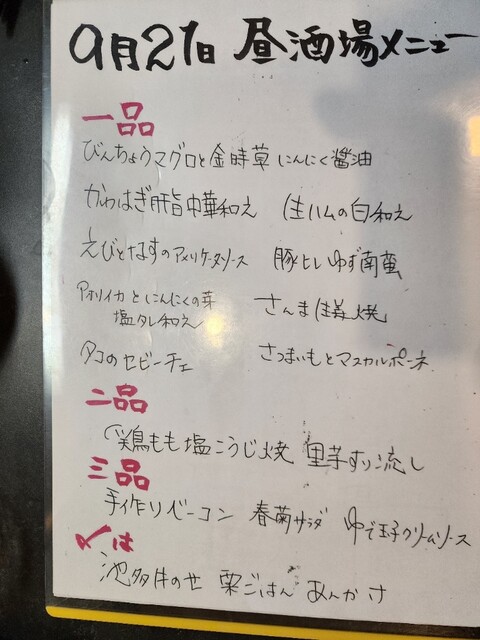 9月21日 昼酒場メニュー
一品
びんちょうマグロと金時草 にんにく醤油
かわはぎ肝旨中華和え 生ハムの白和え
えびとなすのアメリケーヌソース 豚ヒレゆず南蛮
アオリイカとにんにくの芽
塩タレ和え さんま 焼
タコのセビーチェ さつまいもとマスカルポーネ
二品
鶏もも塩こうじ焼 里芋すり流し
三品
手作りベーコン 春菊サラダ ゆで玉子クリームソース
〆は
池多牛のせ 栗ごはん あんかけ